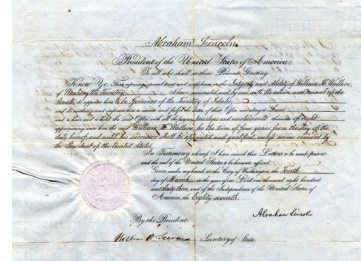 Abraham Lincoln
President of the United States of America.
To all who shall see these Presents, Greeting:
Know Ye, That reposing special trust and confidence in the Integrity and Ability of William H. Wallace,
of Washington Territory, I have nominated, and by and with the advice and consent of the
Senate, do appoint him to be Governor of the Territory of Idaho,
and do authorize and empower him to execute and fulfil the duties of that Office according to Law;
and to have and to hold the said Office, with all the powers, privileges and emoluments thereunto of right
appertaining unto him the said William H. Wallace, for the term of four years from the day of the
date hereof,
the President of the United States
In Testimony whereof, I have caused these Letters to be made patent
and the seal of the United States to be hereunto affixed.
Given under my hand, at the City of Washington, the Fourth
day of March, in the year of our Lord one thousand eight hundred
and sixty three, and of the Independence of the United States of
America, the Eighty seventh.
Abraham Lincoln
By the President
William H. Seward Secretary of State